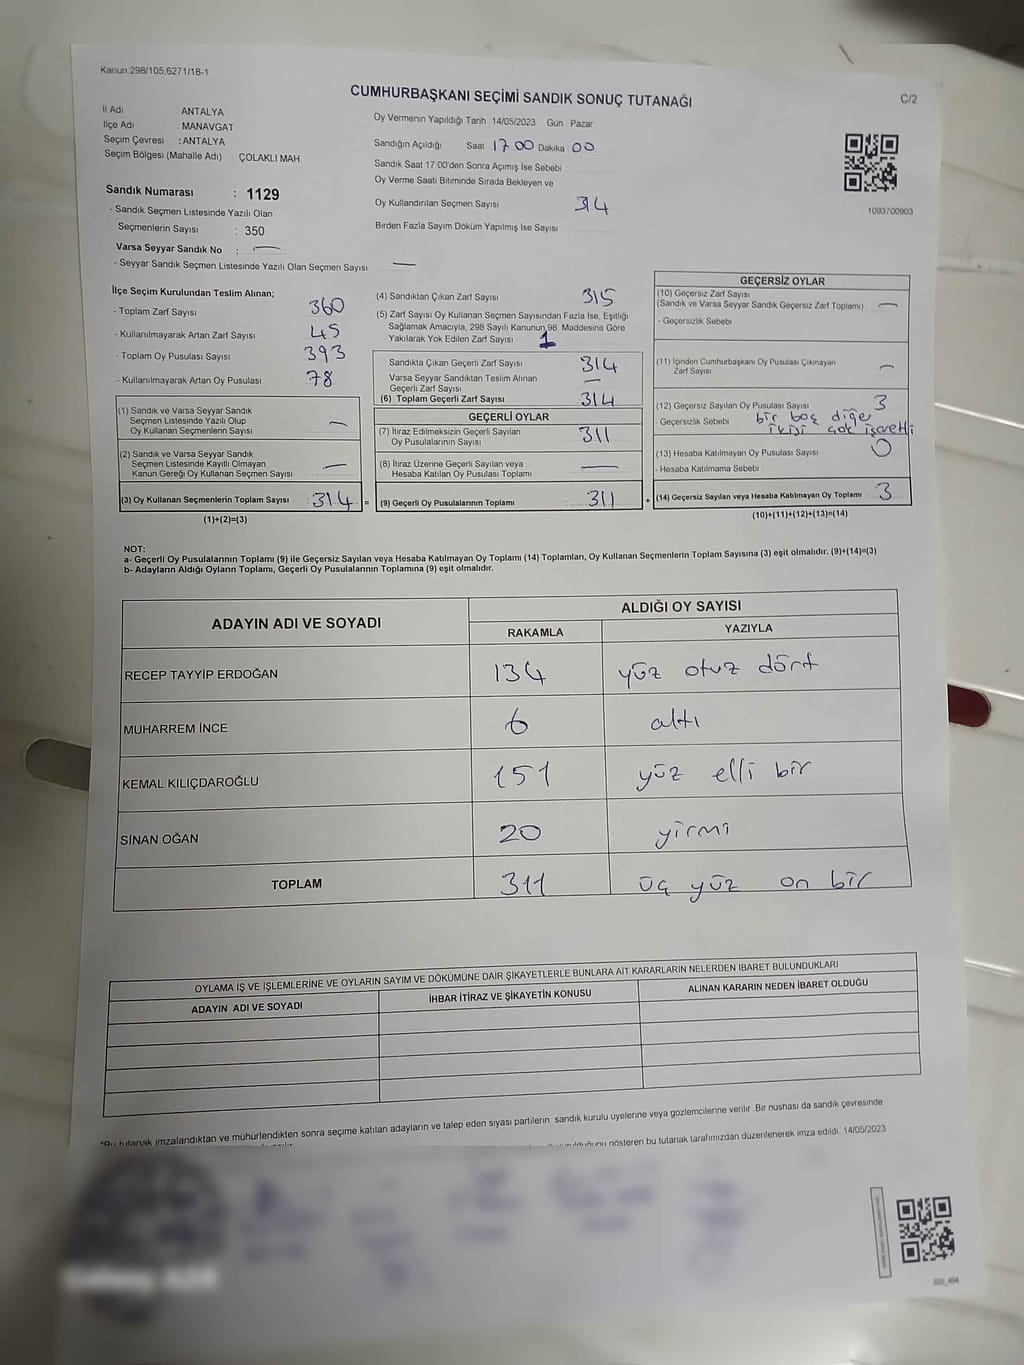 Kanun.298/105,6271/18-1
CUMHURBAŞKANI SEÇİMİ SANDIK SONUÇ TUTANAĞI
C/2
İl Adı ANTALYA
İlçe Adı : MANAVGAT
Seçim Çevresi : ANTALYA
Seçim Bölgesi (Mahalle Adı) ÇOLAKLI MAH.
Sandık Numarası : 1129
- Sandık Seçmen Listesinde Yazılı Olan
Seçmenlerin Sayısı : 350
Varsa Seyyar Sandık No : —
- Seyyar Sandık Seçmen Listesinde Yazılı Olan Seçmen Sayısı: —
Oy Vermenin Yapıldığı Tarih 14/05/2023 Gün Pazar
Sandığın Açıldığı Saat 17 00 Dakika 00
Sandık Saat 17:00'den Sonra Açımış İse Sebebi
Oy Verme Saati Bitiminde Sırada Bekleyen ve
Oy Kullandırılan Seçmen Sayısı 314
Birden Fazla Sayım Döküm Yapılmış İse Sayısı
1093700903
İlçe Seçim Kurulundan Teslim Alınan;
- Toplam Zarf Sayısı 360
- Kullanılmayarak Artan Zarf Sayısı 45
- Toplam Oy Pusulası Sayısı 393
- Kullanılmayarak Artan Oy Pusulası 78
(1) Sandık ve Varsa Seyyar Sandık
Seçmen Listesinde Yazılı Olup
Oy Kullanan Seçmenlerin Sayısı —
(2) Sandık ve Varsa Seyyar Sandık
Seçmen Listesinde Kayıtlı Olmayan
Kanun Gereği Oy Kullanan Seçmen Sayısı —
(3) Oy Kullanan Seçmenlerin Toplam Sayısı : 314 =
(1)+(2)=(3)
(4) Sandıktan Çıkan Zarf Sayısı 315
(5) Zarf Sayısı Oy Kullanan Seçmen Sayısından Fazla İse, Eşitliği
Sağlamak Amacıyla, 298 Sayılı Kanunun 98. Maddesine Göre
Yakılarak Yok Edilen Zarf Sayısı 1
Sandıkta Çıkan Geçerli Zarf Sayısı 314
Varsa Seyyar Sandıktan Teslim Alınan
Geçerli Zarf Sayısı —
(6) Toplam Geçerli Zarf Sayısı 314
GEÇERLİ OYLAR
(7) İtiraz Edilmeksizin Geçerli Sayılan
Oy Pusulalarının Sayısı 311
(8) İtiraz Üzerine Geçerli Sayılan veya
Hesaba Katılan Oy Pusulası Toplamı —
(9) Geçerli Oy Pusulalarının Toplamı : 311 +
GEÇERSİZ OYLAR
(10) Geçersiz Zarf Sayısı
(Sandık ve Varsa Seyyar Sandık Geçersiz Zarf Toplamı) —
- Geçersizlik Sebebi
(11) İçinden Cumhurbaşkanı Oy Pusulası Çıkmayan
Zarf Sayısı —
(12) Geçersiz Sayılan Oy Pusulası Sayısı 3
- Geçersizlik Sebebi bir boş diğer
ikisi çok işaretli
(13) Hesaba Katılmayan Oy Pusulası Sayısı 0
- Hesaba Katılmama Sebebi
(14) Geçersiz Sayılan veya Hesaba Katılmayan Oy Toplamı 3
(10)+(11)+(12)+(13)=(14)
NOT:
a- Geçerli Oy Pusulalarının Toplamı (9) ile Geçersiz Sayılan veya Hesaba Katılmayan Oy Toplamı (14) Toplamları, Oy Kullanan Seçmenlerin Toplam Sayısına (3) eşit olmalıdır. (9)+(14)=(3)
b- Adayların Aldığı Oyların Toplamı, Geçerli Oy Pusulalarının Toplamına (9) eşit olmalıdır.
ADAYIN ADI VE SOYADI
ALDIĞI OY SAYISI
RAKAMLA YAZIYLA
RECEP TAYYİP ERDOĞAN 134 yüz otuz dört
MUHARREM İNCE 6 altı
KEMAL KILIÇDAROĞLU 151 yüz elli bir
SİNAN OĞAN 20 yirmi
TOPLAM 311 üç yüz on bir
OYLAMA İŞ VE İŞLEMLERİNE VE OYLARIN SAYIM VE DÖKÜMÜNE DAİR ŞİKAYETLERLE BUNLARA AİT KARARLARIN NELERDEN İBARET BULUNDUKLARI
ADAYIN ADI VE SOYADI İHBAR İTİRAZ VE ŞİKAYETİN KONUSU ALINAN KARARIN NEDEN İBARET OLDUĞU
*Bu tutanak imzalandıktan ve mühürlendikten sonra seçime katılan adayların ve talep eden siyasi partilerin sandık kurulu üyelerine veya gözlemcilerine verilir. Bir nushası da sandık çevresinde
gösteren bu tutanak tarafımızdan düzenlenerek imza edildi. 14/05/2023